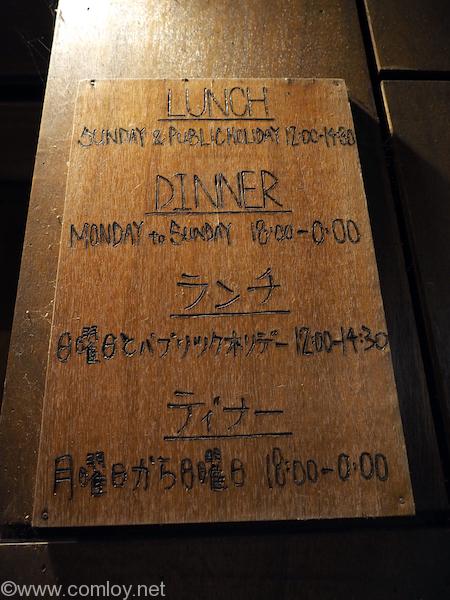 LUNCH
SUNDAY & PUBLIC HOLIDAY 12:00-14:30
DINNER
MONDAY to SUNDAY 18:00-0:00
ランチ
日曜日とパブリックホリデー 12:00-14:30
ディナー
月曜日から日曜日 18:00-0:00
©www.comloy.net